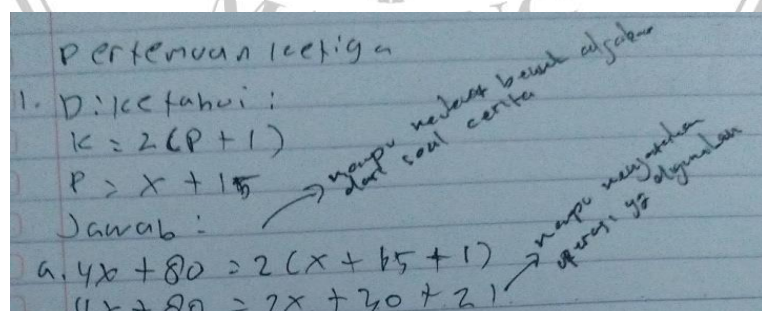 Pertemuan ketiga
1. Diketahui :
K = 2(P + 1)
P = x + 15
Jawab :
mampu bentuk aljabar
dari soal cerita
a. 4x + 80 = 2(x + 15 + 1)
mampu menyatakan
operasi yg digunakan
4x + 80 = 2x + 30 + 2l